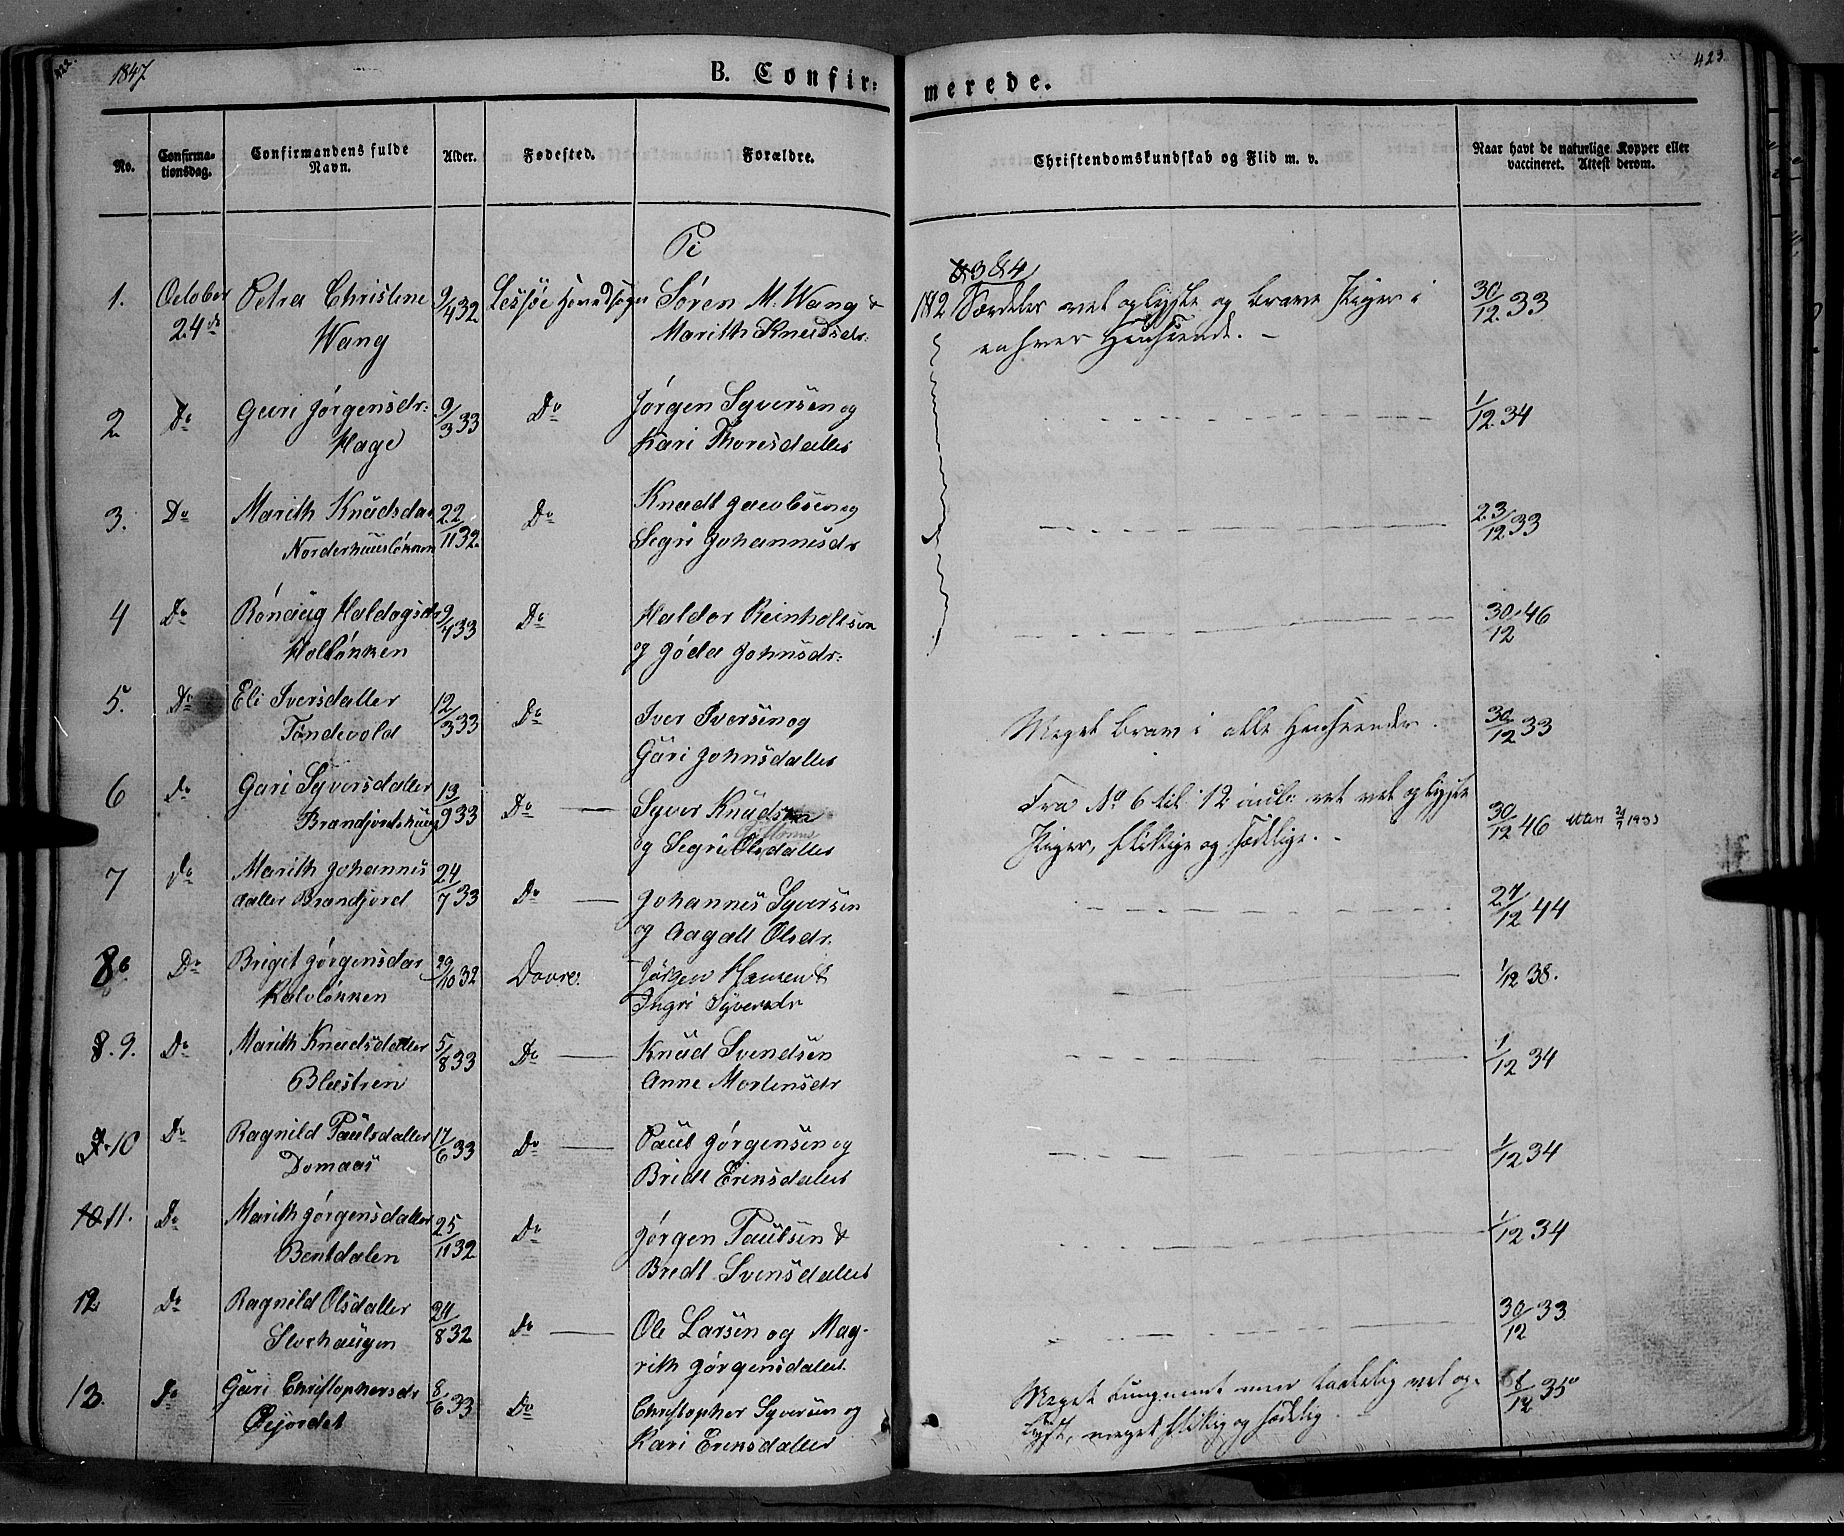 422.
1847
B. Confir-
merede.
423
No.
Confirma-
tionsdag.
Confirmandens fulde
Navn.
Alder.
Fødested.
Forældre.
Christendomskundskab og Flid m. v.
Naar havt de naturlige Kopper eller
vaccineret. Attest derom.
Pi
1. October Petra Christine 9/4 32 Lessøe Hovedsogn Søren M. Wang &
24de Wang Marith Knudsdr:
3 & 4
1 & 2 Særdeles vel oplyste og brave Piger i 30/12 33
enhver Henseende. -
2. Do Guri Jørgensdr: 9/3 33 Do Jørgen Syversen og 1/12 34
Hage Kari Thoresdatter
3. Do Marith Knudsdat 22/11 32 Do Knudt Jacobsen og 23/12 33
Norderhuusløkken Segri Johannesdr
4 Do Rønaug Haldogsdr 9/4 33 Do Haldor Reinholtsen 30/12 46
Holløkken og Jøda Johnsdr:
5. Do Eli Iversdatter 12/3 33 Do Iver Iversen og Meget brav i alle Henseender. 30/12 33
Tøndevold Guri Johnsdatter
6 Do Gari Syversdatter 13/9 33 Do Syver Knudsen Fra No 6 til 12 incl: ret vel oplyste 30/12 46
Brandjordshaug og Segri Olsdatter Piger, flittige og sædelige. -
7 Do Marith Johannes 24/7 33 Do Johannes Syversen 27/12 44
datter Brandjord og Aagatt Olsdr.
8 Do Briget Jørgensdat 29/10 32 Dovre. Jørgen Hansen & 1/12 38.
Kalvløkken Ingri Syversdr
8. 9. Do Marith Knudsdatter 5/8 33 Do Knud Svendsen 1/12 34
Blæstren Anne Mortensdr
10 Do Ragnild Paulsdatter 17/6 33 Do Paul Jørgensen og 1/12 34
Domaas Bridt Eriksdatter
10 11. Do Marith Jørgensdatter 25/11 32 Do Jørgen Paulsen & 1/12 34
Bentdalen Bredt Svensdatter
12 Do Ragnild Olsdatter 24/8 32 Do Ole Larsen og Mag- 30/12 33
Storhaugen rith Jørgensdatter.
13. Do Guri Christophersdr 8/6 33 Do Christopher Syversen og Meget tungnemt men taalelig vel op- 12 35
Øejordet Kari Eriksdatter lyst, meget flittig og sædelig